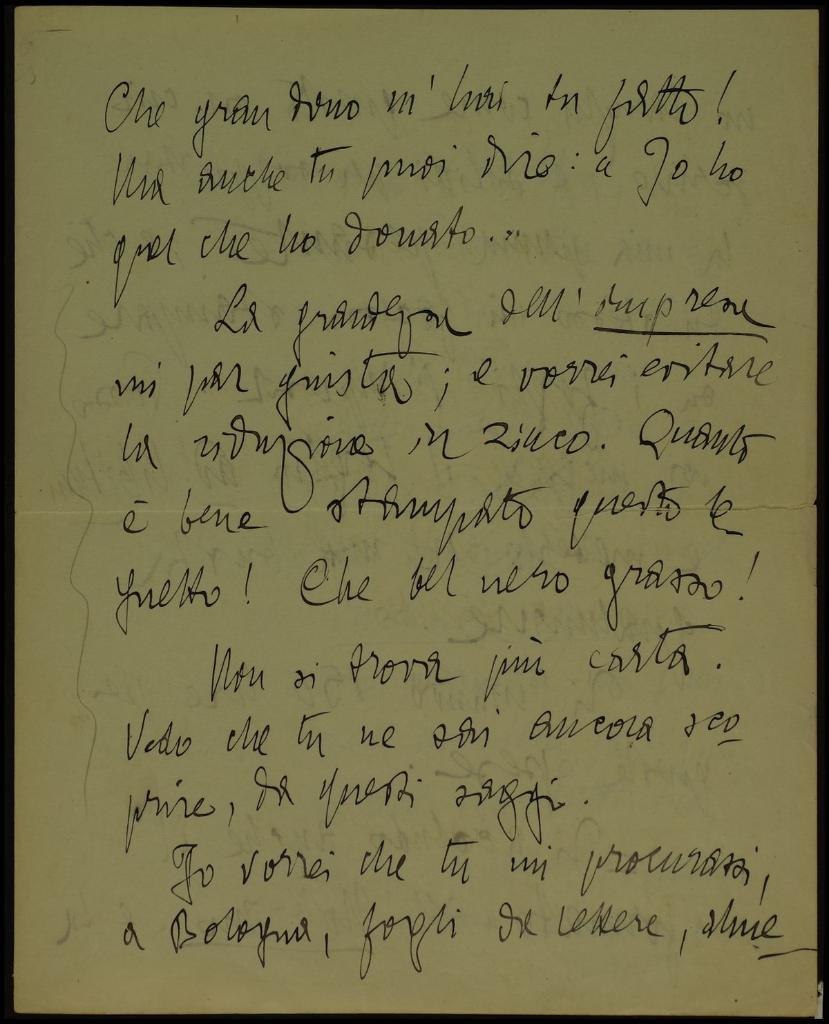 Che gran dono m'hai tu fatto!
Ma anche tu puoi dire: « Io ho
quel che ho donato...
La grandezza dell'impresa
mi par giusta; e vorrei evitare
la riduzione in zinco. Quanto
è bene stampato questo le
gnetto! Che bel nero grasso!
Non si trova più carta.
Vedo che tu ne sai ancora sco
prire, da questi saggi.
Io vorrei che tu mi procurassi,
a Bologna, fogli da lettere, alme